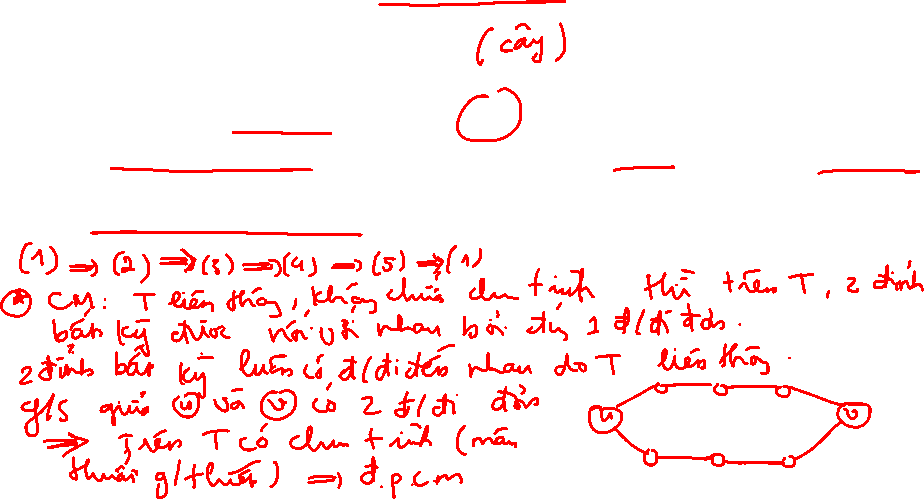 (cây)
(1) ⇒ (2) ⇒ (3) ⇒ (4) → (5) ⇒ (1)
* CM: T liên thông, không chứa chu trình thì trên T, 2 đỉnh
bất kỳ được nối với nhau bởi đúng 1 đ/đi đơn.
2 đỉnh bất kỳ luôn có đ/đi đến nhau do T liên thông.
g/s giữa u và v có 2 đ/đi đơn
⇒ Trên T có chu trình (mâu
thuẫn g/thiết) ⇒ đ.p.c.m
u v